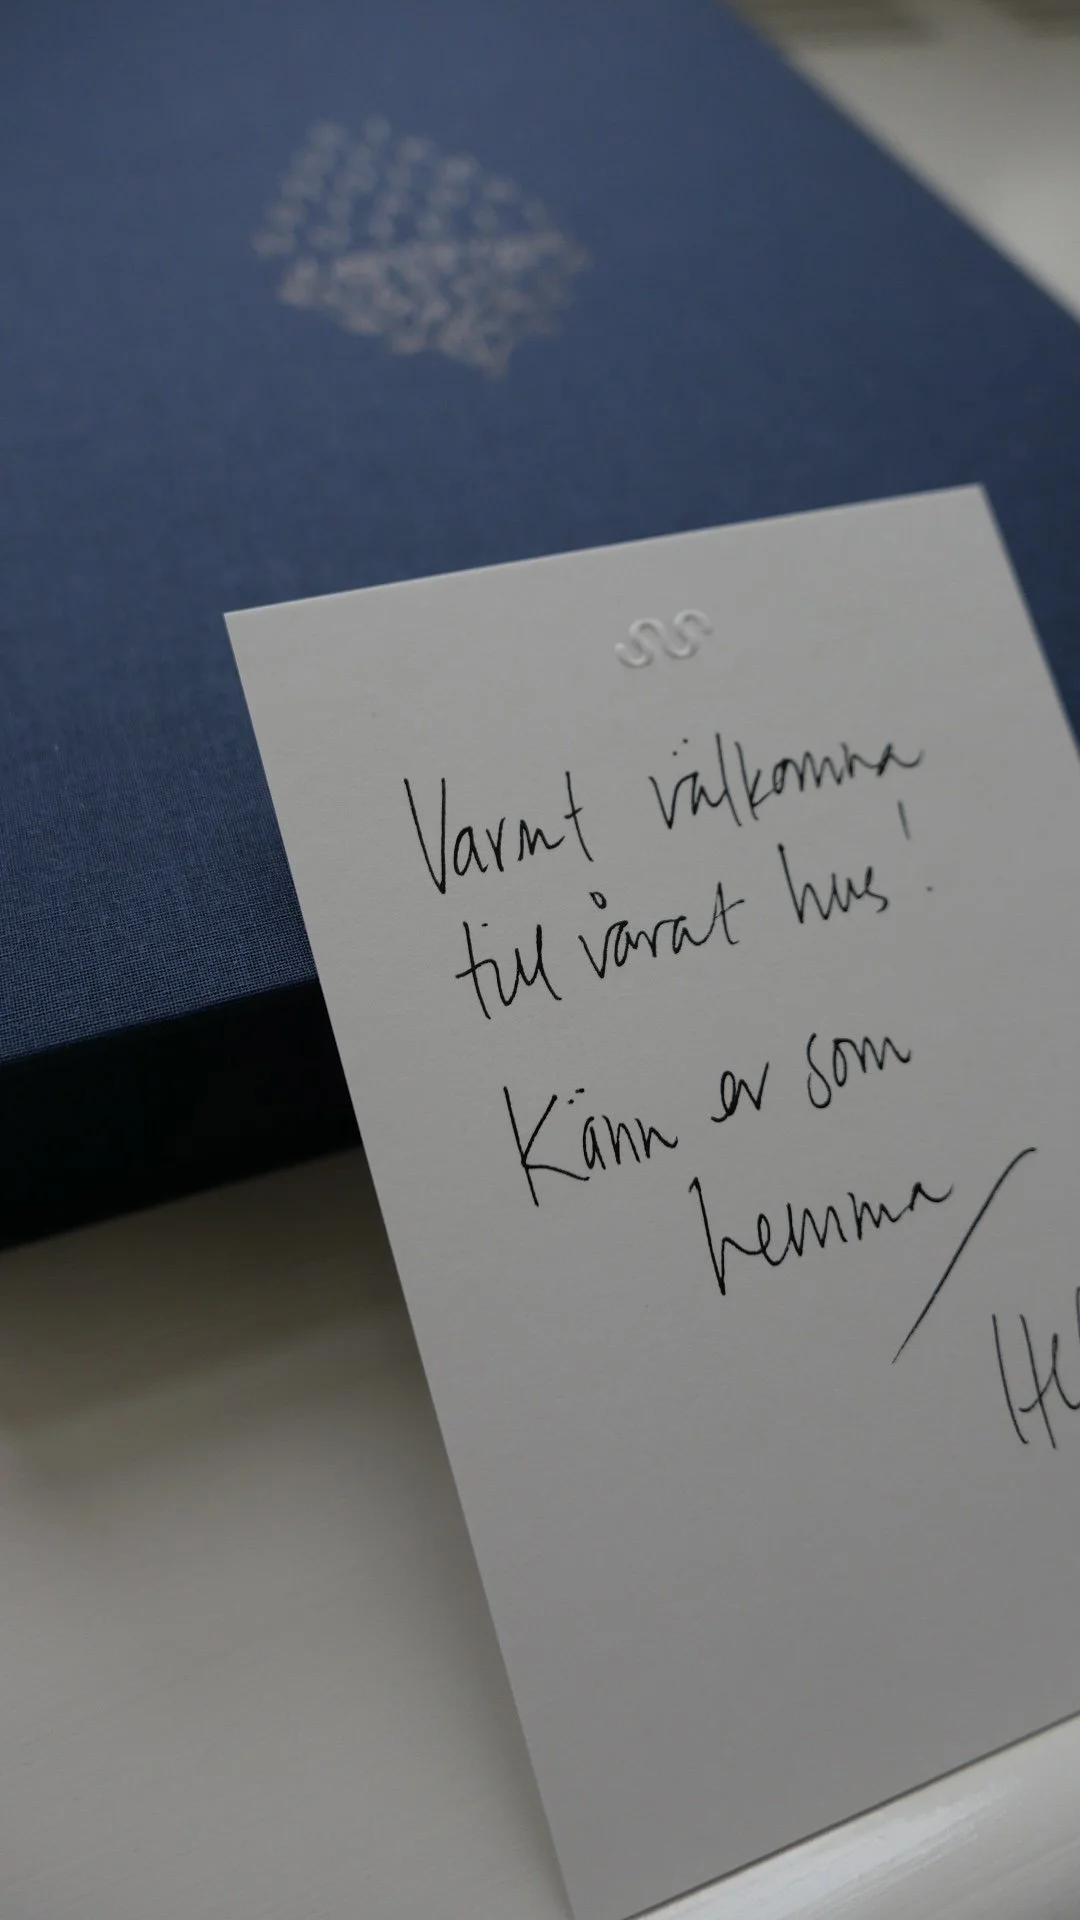 Varmt välkomna
till vårat hus!
Känn er som
hemma/